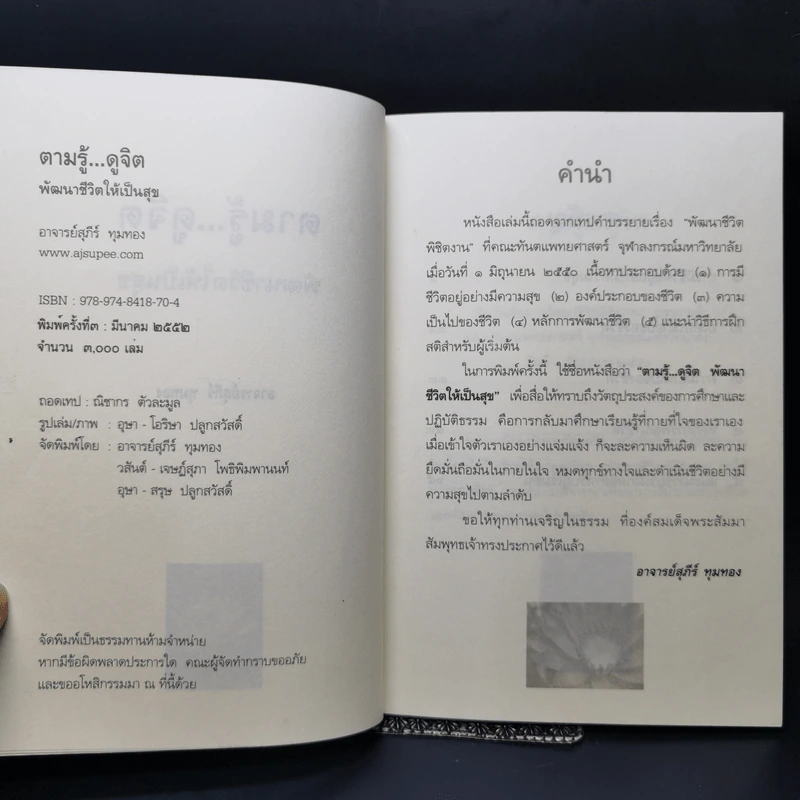 ตามรู้...ดูจิต
พัฒนาชีวิตให้เป็นสุข
อาจารย์สุภีร์ ทุมทอง
www.ajsupee.com
ISBN : 978-974-8418-70-4
พิมพ์ครั้งที่๓ : มีนาคม ๒๕๕๒
จำนวน ๓,๐๐๐ เล่ม
ถอดเทป : ณิชากร ตัวละมูล
รูปเล่ม/ภาพ : อุษา - โอริษา ปลูกสวัสดิ์
จัดพิมพ์โดย : อาจารย์สุภีร์ ทุมทอง
วสันต์ - เจษฎ์สุภา โพธิพิมพานนท์
อุษา - สรุษ ปลูกสวัสดิ์
จัดพิมพ์เป็นธรรมทานห้ามจำหน่าย
หากมีข้อผิดพลาดประการใด คณะผู้จัดทำกราบขออภัย
และขออโหสิกรรมมา ณ ที่นี้ด้วย
คำนำ
หนังสือเล่มนี้ถอดจากเทปคำบรรยายเรื่อง "พัฒนาชีวิต
พิชิตงาน" ที่คณะทันตแพทยศาสตร์ จุฬาลงกรณ์มหาวิทยาลัย
เมื่อวันที่ ๑ มิถุนายน ๒๕๕๐ เนื้อหาประกอบด้วย (๑) การมี
ชีวิตอยู่อย่างมีความสุข (๒) องค์ประกอบของชีวิต (๓) ความ
เป็นไปของชีวิต (๔) หลักการพัฒนาชีวิต (๕) แนะนำวิธีการฝึก
สติสำหรับผู้เริ่มต้น
ในการพิมพ์ครั้งนี้ ใช้ชื่อหนังสือว่า "ตามรู้...ดูจิต พัฒนา
ชีวิตให้เป็นสุข" เพื่อสื่อให้ทราบถึงวัตถุประสงค์ของการศึกษาและ
ปฏิบัติธรรม คือการกลับมาศึกษาเรียนรู้ที่กายที่ใจของเราเอง
เมื่อเข้าใจตัวเราเองอย่างแจ่มแจ้ง ก็จะละความเห็นผิด ละความ
ยึดมั่นถือมั่นในกายในใจ หมดทุกข์ทางใจและดำเนินชีวิตอย่างมี
ความสุขไปตามลำดับ
ขอให้ทุกท่านเจริญในธรรม ที่องค์สมเด็จพระสัมมา
สัมพุทธเจ้าทรงประกาศไว้ดีแล้ว
อาจารย์สุภีร์ ทุมทอง